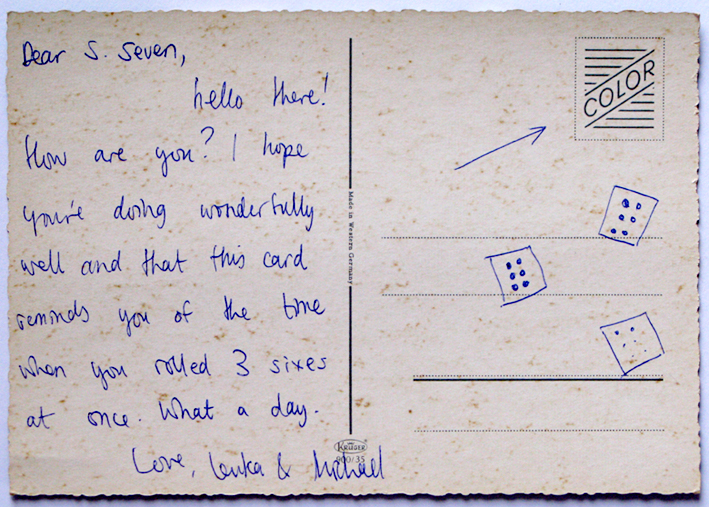 Dear S. Seven,
hello there!
How are you? I hope
you're doing wonderfully
well and that this card
reminds you of the time
when you rolled 3 sixes
at once. What a day.
Love, Lenka & Michael
Made in Western Germany
KRÜGER
900/35
COLOR